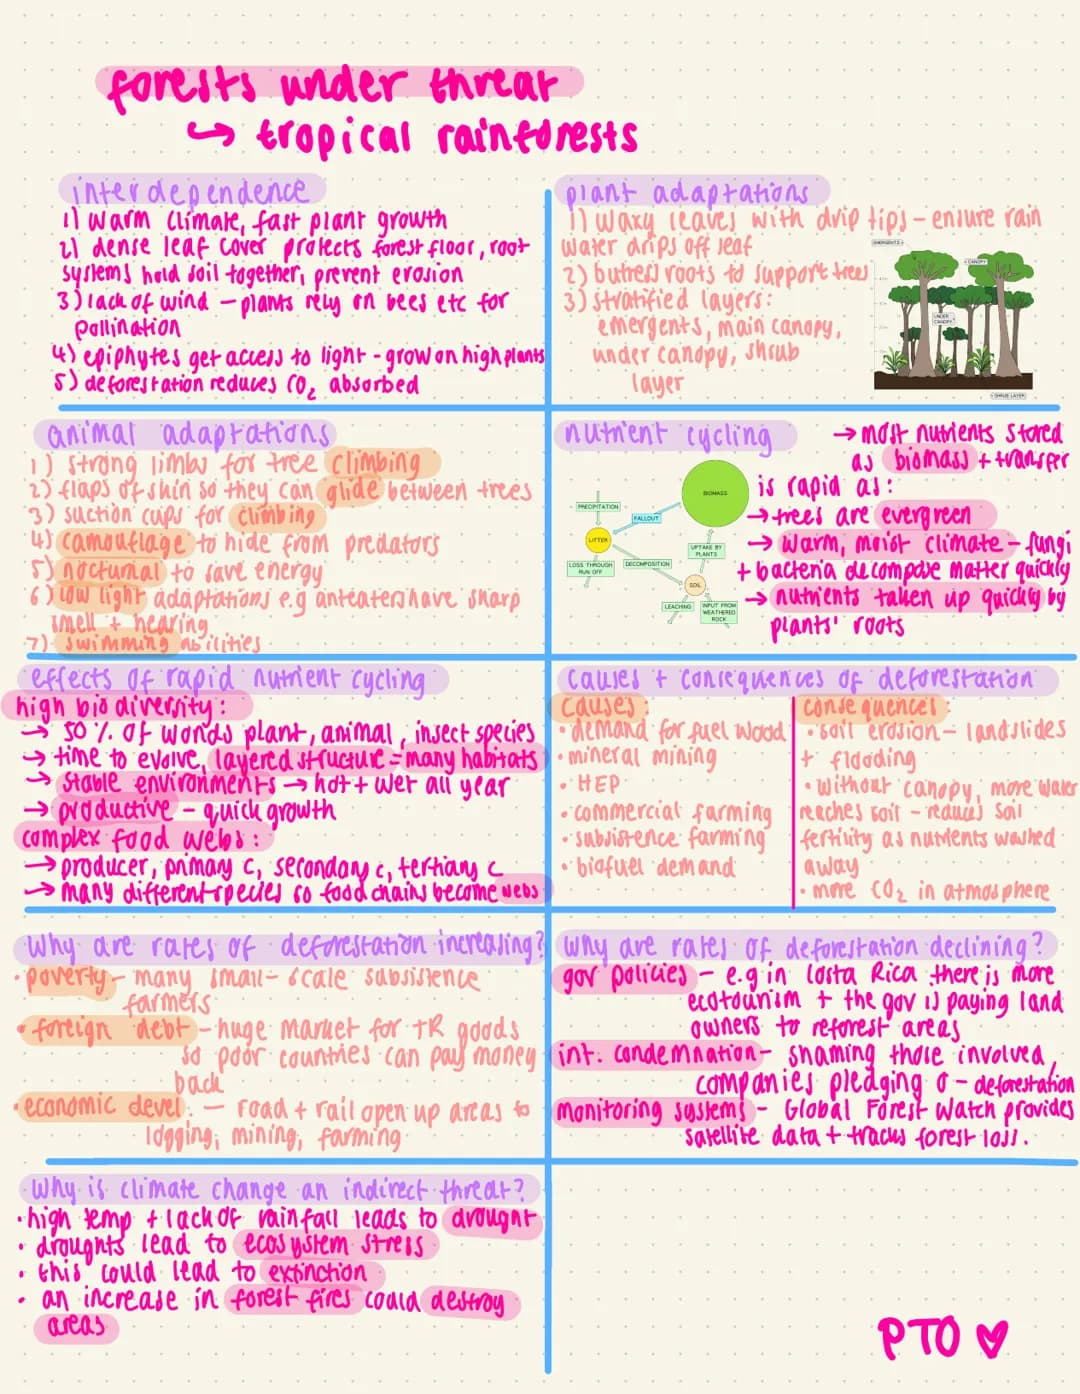 forests under threat
↪ tropical rainforests
interdependence
1) warm climate, fast plant growth
2) dense leaf cover protects forest floor, root
systems hold soil together, prevent erosion
3) lack of wind – plants rely on bees etc for
pollination
4) epiphytes get access to light - grow on high plants
5) deforestation reduces CO₂ absorbed
plant adaptations
1) waxy leaves with drip tips – ensure rain
water drips off leaf
2) buttress roots to support trees
3) stratified layers:
emergents, main canopy,
under canopy, shrub
layer
EMERGENTS
CANOPY
UNDER
CANOPY
SHRUB LAYER
animal adaptations
1) strong limbs for tree climbing
2) flaps of skin so they can glide between trees
3) suction cups for climbing
4) camouflage to hide from predators
5) nocturnal to save energy
6) low light adaptations e.g anteaters have sharp
smell + hearing
7) swimming abilities
nutrient cycling
→ most nutrients stored
as biomass + transfer
is rapid as:
→ trees are evergreen
→ warm, moist climate – fungi
+ bacteria decompose matter quickly
→ nutrients taken up quickly by
plants' roots
BIOMASS
PRECIPITATION
FALLOUT
LITTER
UPTAKE BY
PLANTS
LOSS THROUGH
RUN OFF
DECOMPOSITION
SOIL
LEACHING
INPUT FROM
WEATHERED
ROCK
effects of rapid nutrient cycling
high biodiversity:
→ 50% of worlds plant, animal, insect species
→ time to evolve, layered structure = many habitats
→ stable environments → hot + wet all year
→ productive – quick growth
complex food webs:
→ producer, primary c, secondary c, tertiary c
→ many different species so food chains become webs
causes + consequences of deforestation
causes:
• demand for fuel wood
• mineral mining
• HEP
• commercial farming
• subsistence farming
• biofuel demand
consequences:
• soil erosion – landslides
+ flooding
• without canopy, more water
reaches soil – reduces soil
fertility as nutrients washed
away
• more CO₂ in atmosphere
Why are rates of deforestation increasing?
• poverty – many small-scale subsistence
farmers
• foreign debt – huge market for TR goods
so poor countries can pay money
back
• economic devel. – road + rail open up areas to
logging, mining, farming
Why are rates of deforestation declining?
gov policies – e.g in Costa Rica there is more
ecotourism + the gov is paying land
owners to reforest areas
int. condemnation – shaming those involved,
companies pledging 0 – deforestation
monitoring systems – Global Forest Watch provides
satellite data + tracks forest loss.
Why is climate change an indirect threat?
• high temp + lack of rainfall leads to drought
• droughts lead to ecosystem stress
• this could lead to extinction
• an increase in forest fires could destroy
areas
PTO ♡